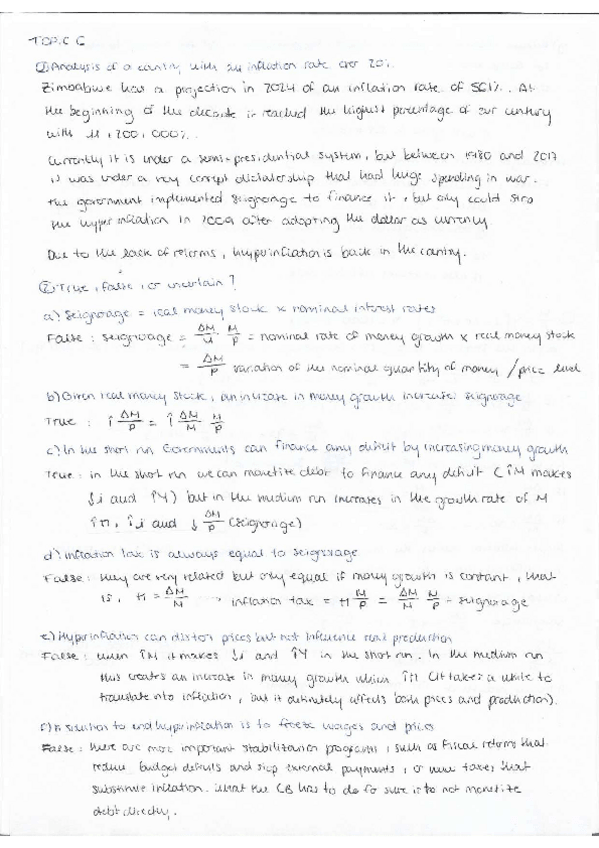 TOPIC C
① Analysis of a country with an inflation rate over 20%
Zimbabwe has a projection in 2024 of an inflation rate of 561%. At
the beginning of the decade it reached the highest percentage of our century
with 11,200,000%.
Currently it is under a semi-presidential system, but between 1980 and 2017
it was under a very corrupt dictatorship that had huge spending in war.
The government implemented seignorage to finance it, but only could stop
the hyperinflation in 2009 after adopting the dollar as currency.
Due to the lack of reforms, hyperinflation is back in the country.
② True, false, or uncertain?
a) Seignorage = real money stock x nominal interest rates
False: seignorage = ΔM/M · M/P = nominal rate of money growth x real money stock
= ΔM/P variation of the nominal quantity of money / price level
b) Given real money stock, an increase in money growth increases seignorage
True: ↑ ΔM/P = ↑ ΔM/M · M/P
c) In the short run Governments can finance any deficit by increasing money growth
True: in the short run we can monetite debt to finance any deficit (↑M makes
↓i and ↑Y) but in the medium run increases in the growth rate of M
↑π, ↑i and ↓ ΔM/P (seignorage)
d) Inflation tax is always equal to seignorage
False: they are very related but only equal if money growth is constant, that
is, π = ΔM/M → inflation tax = π M/P = ΔM/M · M/P = seignorage
e) Hyperinflation can distort prices but not influence real production
False: when ↑M it makes ↓i and ↑Y in the short run. In the medium run
this creates an increase in money growth which ↑π (it takes a while to
translate into inflation, but it definitely affects both prices and production).
f) A solution to end hyperinflation is to freeze wages and prices
False: there are more important stabilitation programs, such as fiscal reforms that
reduce budget deficits and stop external payments, or new taxes that
substitute inflation. What the CB has to do for sure is to not monetite
debt directly.